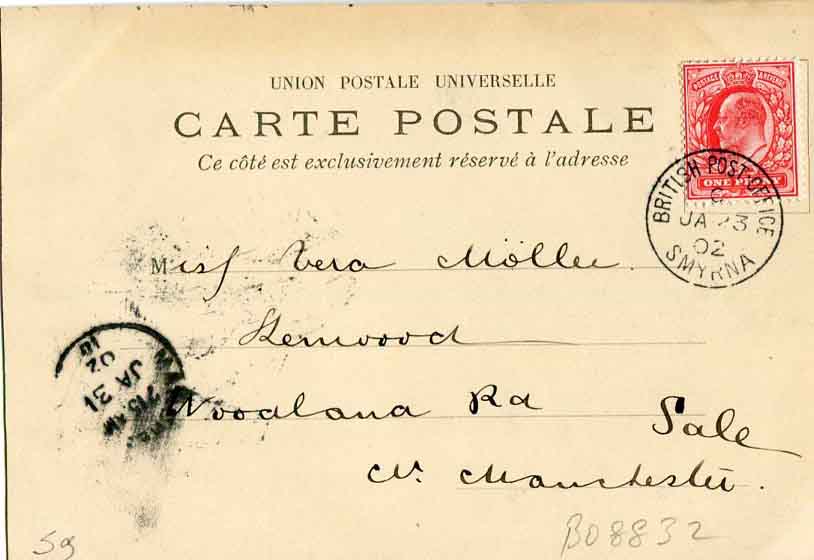 UNION POSTALE UNIVERSELLE
CARTE POSTALE
Ce côté est exclusivement réservé à l'adresse
POSTAGE & REVENUE
ONE PENNY
BRITISH POST-OFFICE
C
JA 23
02
SMYRNA
Miss Vera Möller.
Kenwood
Woodland Rd
Sale
Nr. Manchester.
JA 31
02
7 15 AM
59
B08832